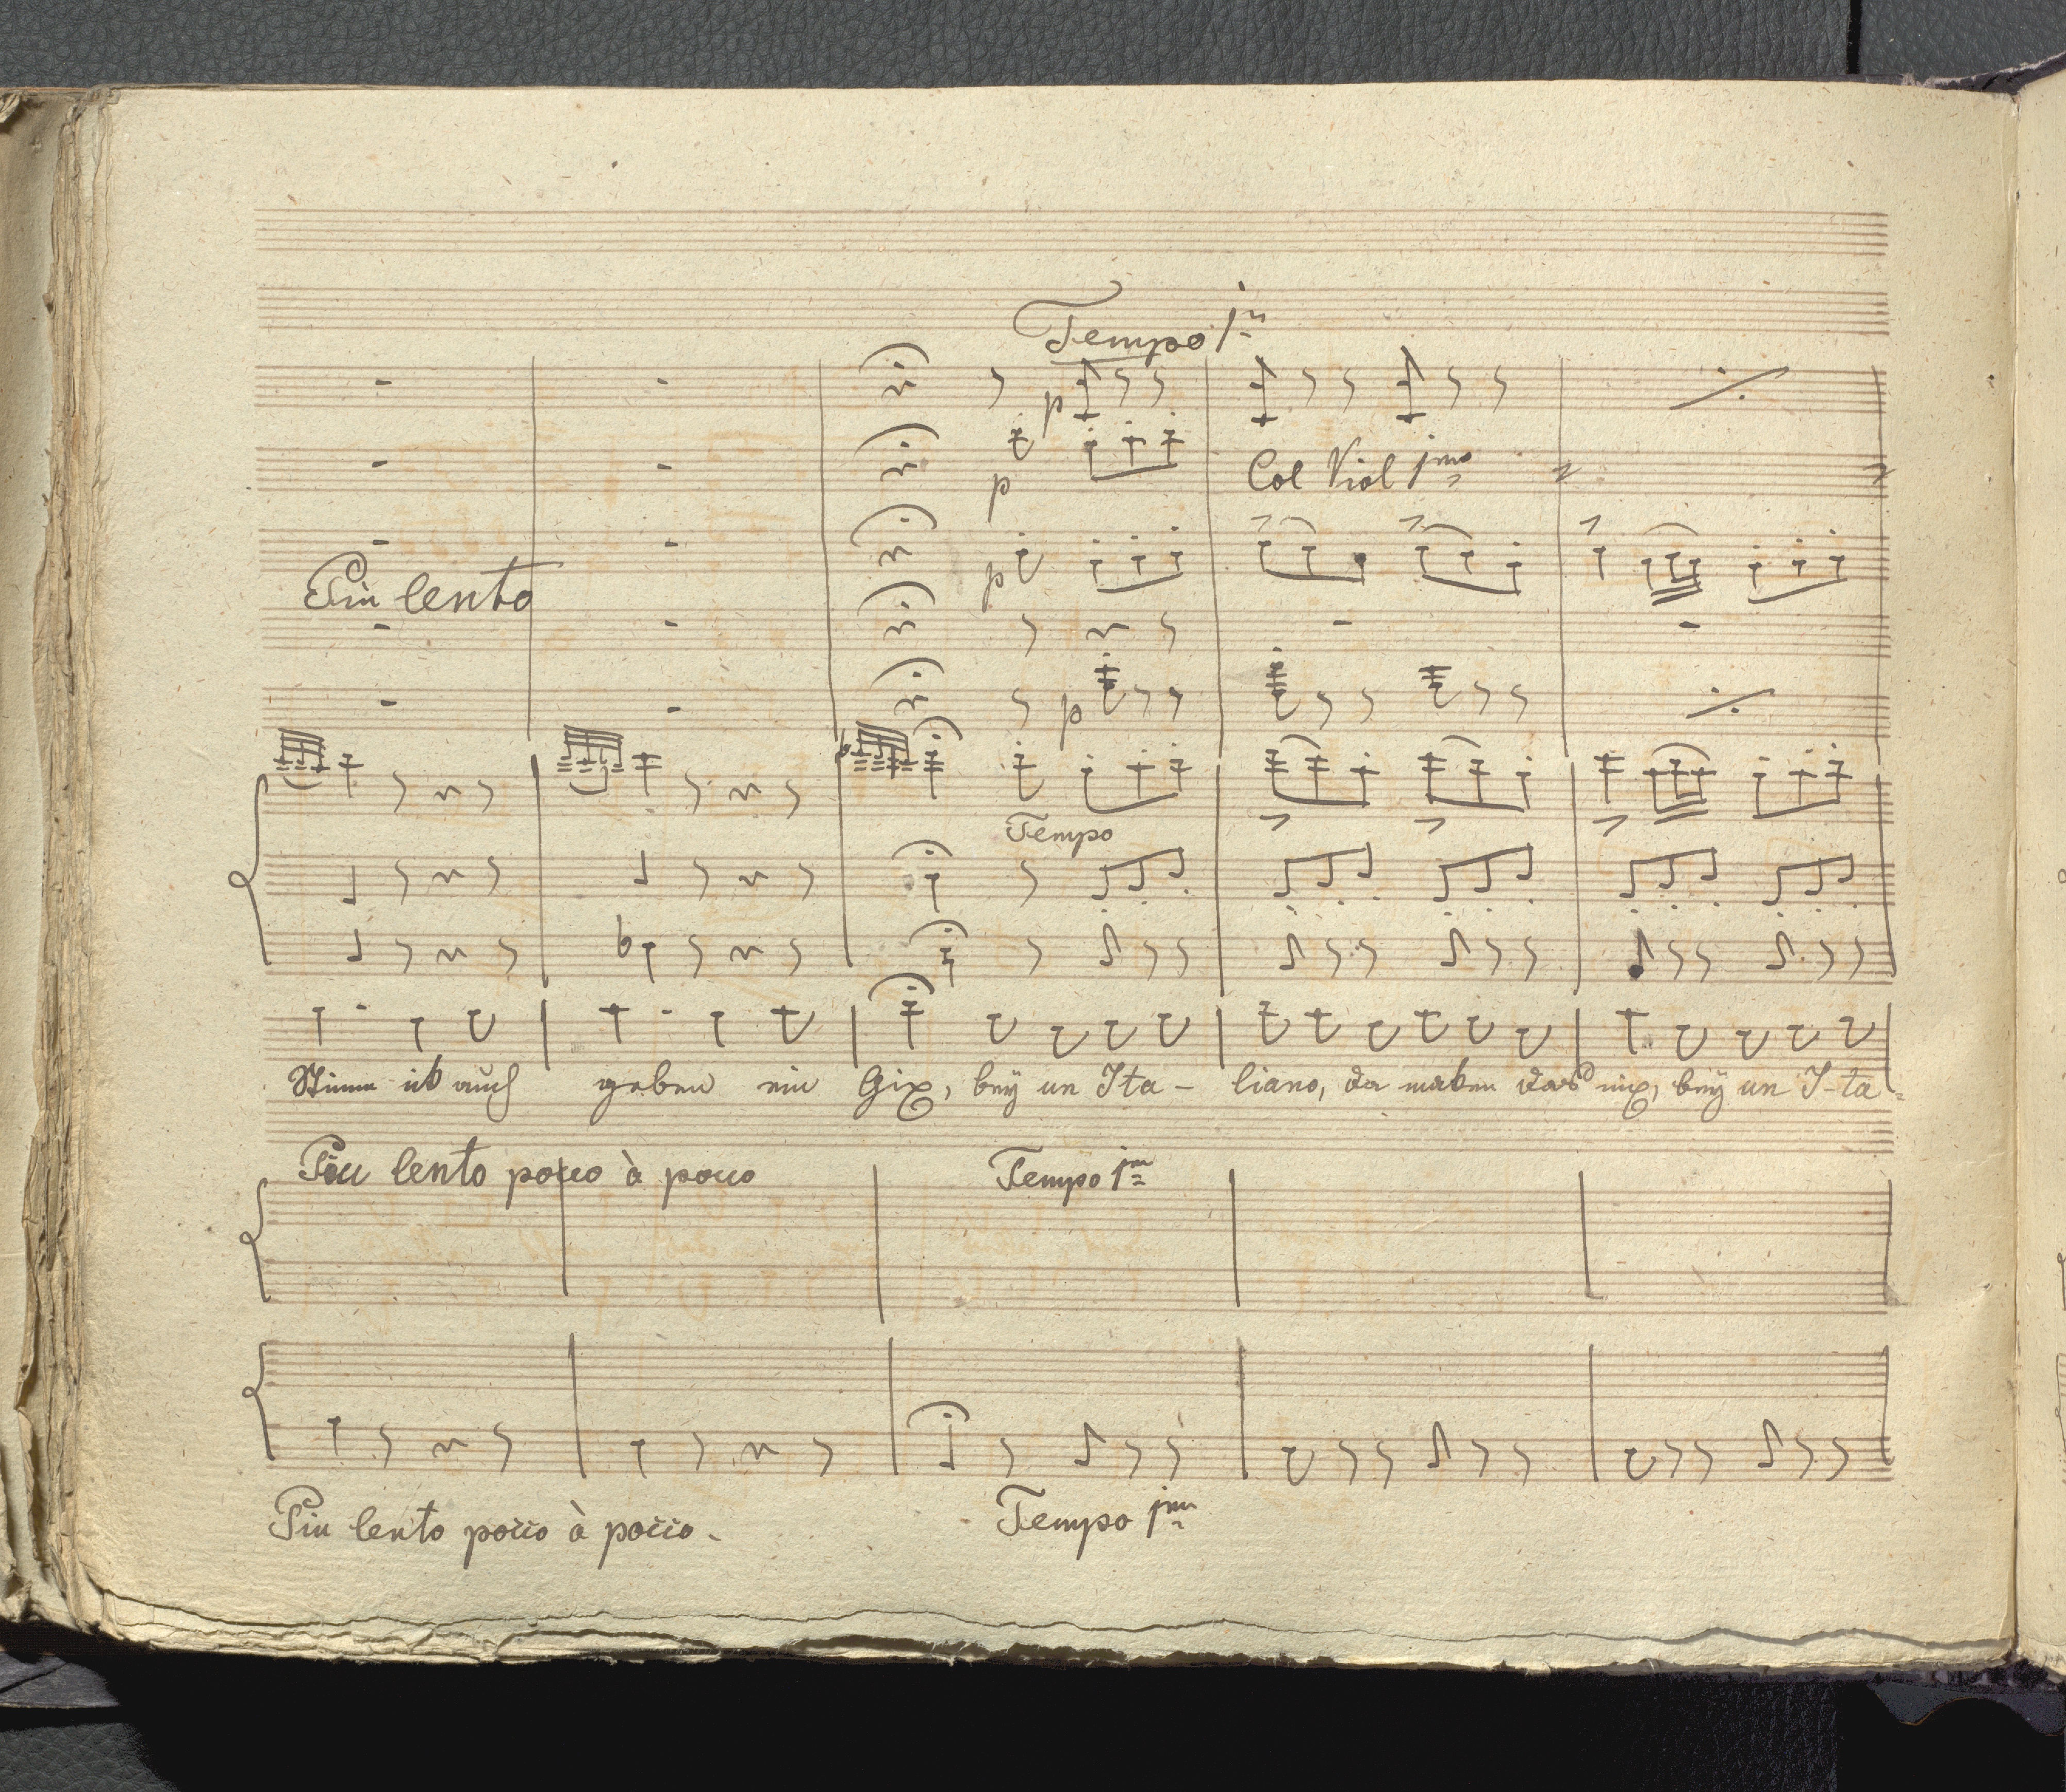 Tempo 1mo
p
p
Col Viol 1mo
p
Piu lento
p
Tempo
Stimm ik auch geben ein Gix, bey un Ita - liano, da maken das nix, bey un I-ta-
Piu lento poco à poco
Tempo 1mo
Piu lento poco à poco.
Tempo 1mo